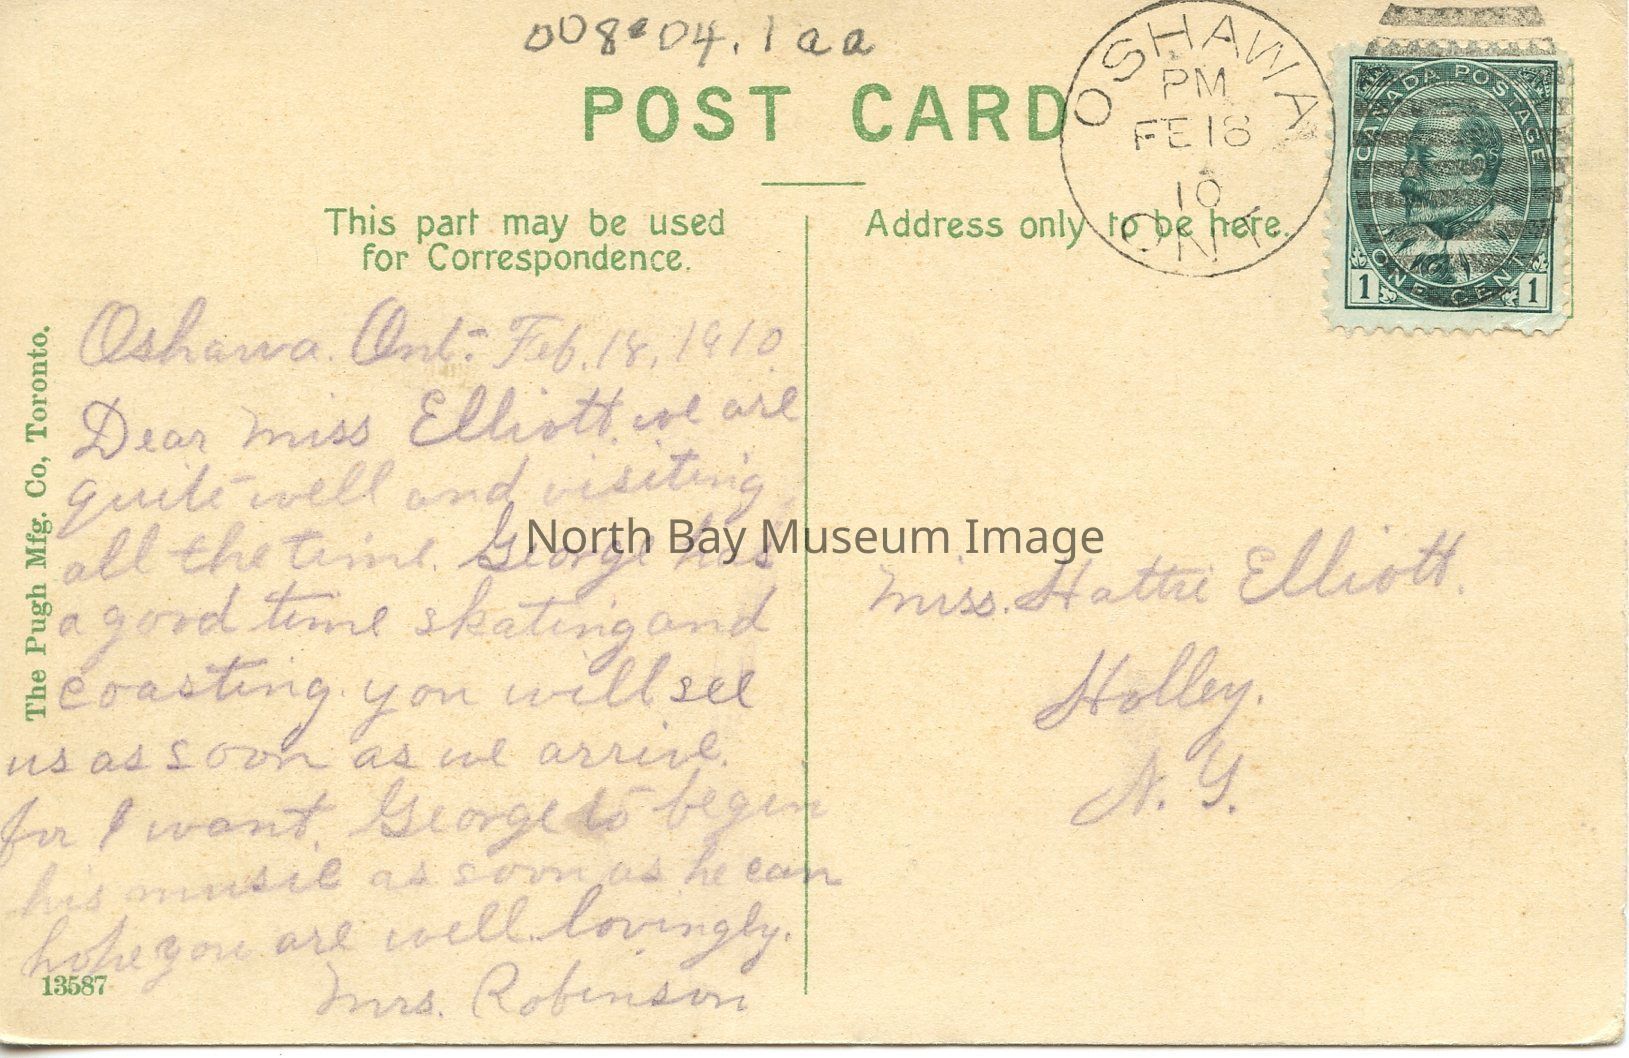 008.04.1aa
POST CARD
OSHAWA
PM
FE 18
10
ONT
CANADA POSTAGE
ONE CENT
1 1
This part may be used
for Correspondence.
Address only to be here.
The Pugh Mfg. Co, Toronto.
Oshawa. Ont. Feb. 18, 1910
Dear Miss Elliott. we are
quite well and visiting
all the time. George has
a good time skating and
coasting. you will see
us as soon as we arrive.
for I want. George to begin
his music as soon as he can
hope you are well. lovingly.
Mrs. Robinson
13587
Miss. Hattie Elliott.
Holley.
N. Y.
North Bay Museum Image